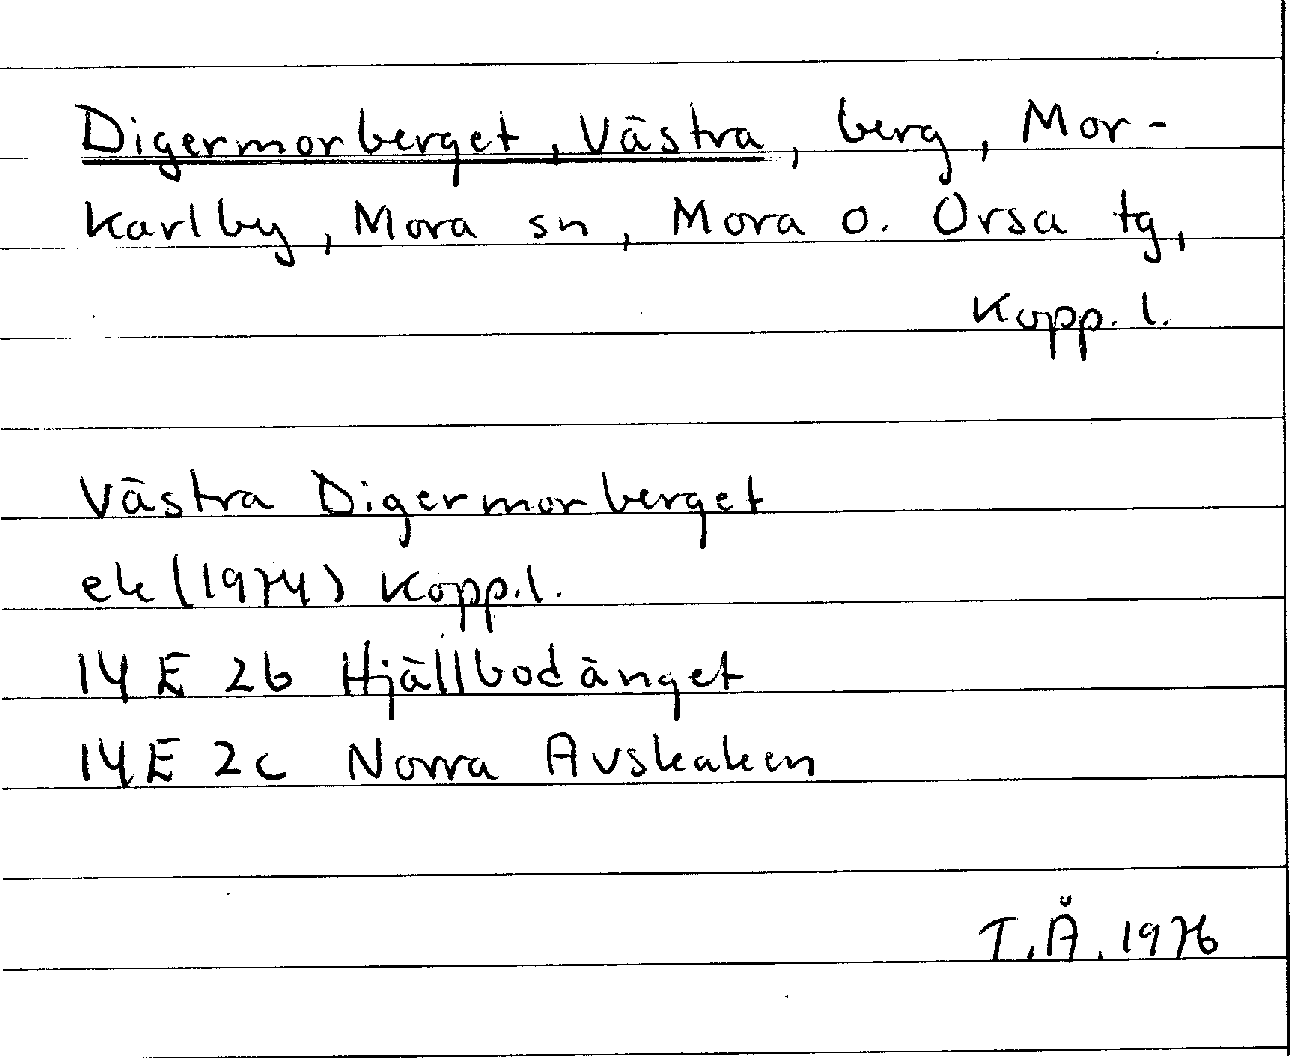 Digermorberget, Västra, berg, Mor-
karlby, Mora sn, Mora o. Orsa tg,
Kopp. l.
Västra Digermorberget
ek (1974) Kopp.l.
14 E 2b Hjällbodänget
14 E 2c Norra Avskaken
T.Å. 1976